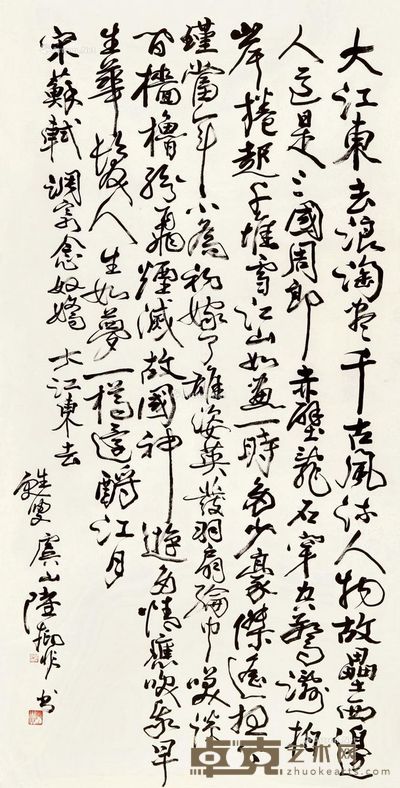 大江東去浪淘盡千古風流人物故壘西邊
人道是三國周郎赤壁亂石穿空驚濤拍
岸捲起千堆雪江山如畫一時多少豪傑遙想公
瑾當年小喬初嫁了雄姿英發羽扇綸巾笑談
間檣櫓飛灰煙滅故國神遊多情應笑我早
生華髮人生如夢一樽還酹江月
宋蘇軾調寄念奴嬌 大江東去
虞山陸 书
卓克艺术网
www.zhuokearts.com